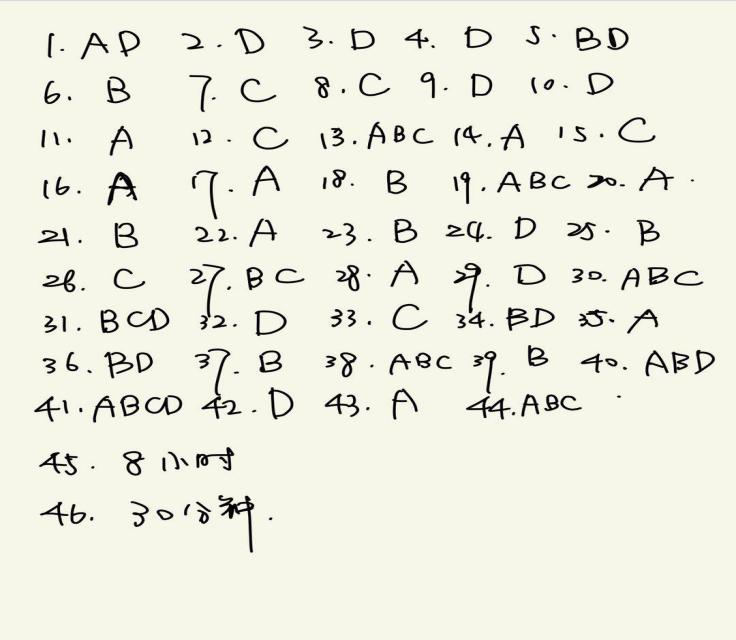 1. AD 2. D 3. D 4. D 5. BD
6. B 7. C 8. C 9. D 10. D
11. A 12. C 13. ABC 14. A 15. C
16. A 17. A 18. B 19. ABC 20. A.
21. B 22. A 23. B 24. D 25. B
26. C 27. BC 28. A 29. D 30. ABC
31. BCD 32. D 33. C 34. BD 35. A
36. BD 37. B 38. ABC 39. B 40. ABD
41. ABCD 42. D 43. A 44. ABC
45. 8小时
46. 30分钟.